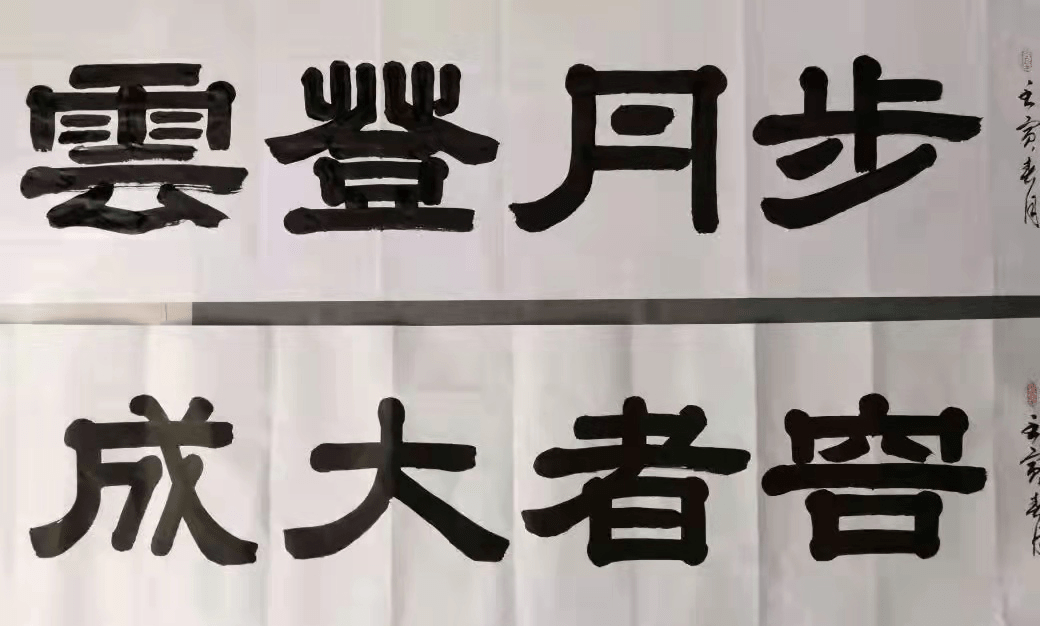 壬寅春月
步月登雲
壬寅春
容者大成